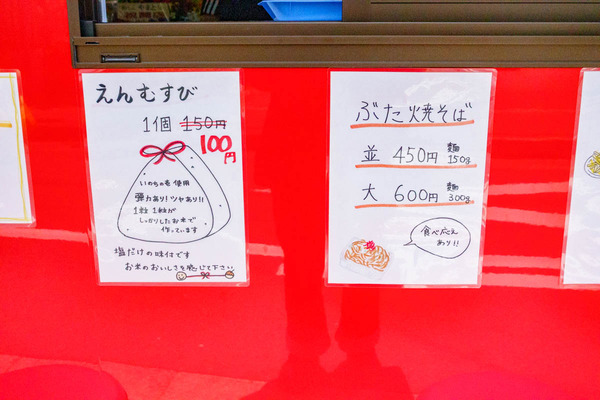 えんむすび
1個 150円
100円
いのちの壱使用
弾力あり!ツヤあり!!
1粒1粒が
しっかりしたお米で
作っています
塩だけの味付です
お米のおいしさを感じて下さい
ぶた焼そば
並 450円 麺150g
大 600円 麺300g
食べごたえ
あり!!